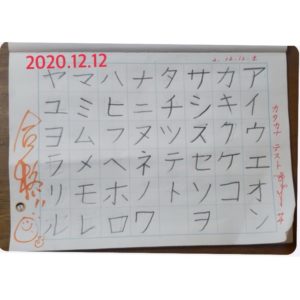 2020.12.12
2.12.12.土
カタカナ テスト
アイウエオン
カキクケコ
サシスセソヲ
タチツテト
ナニヌネノワ
ハヒフヘホロ
マミムメモレ
ヤユヨラリル
合格!!